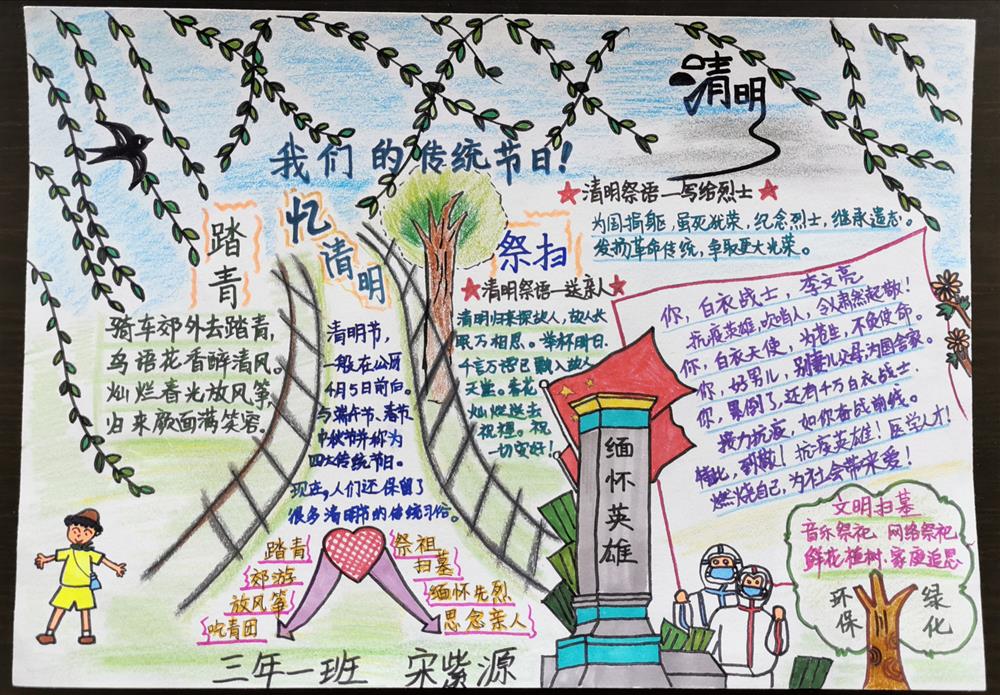 清明
我们的传统节日!
忆清明
踏青
骑车郊外去踏青,
鸟语花香醉清风。
灿烂春光放风筝,
归来颜面满笑容。
清明节,
一般在公历
4月5日前后。
与端午节、春节、
中秋节并称为
四大传统节日。
现在,人们还保留了
很多清明节的传统习俗。
踏青
郊游
放风筝
吃青团
祭祖
扫墓
缅怀先烈
思念亲人
祭扫
清明祭语—写给烈士
为国捐躯,虽死犹荣,纪念烈士,继承遗志。
发扬革命传统,争取更大光荣。
清明祭语—送亲人
清明归来探故人,故人长
眠万相思。举杯明日,
千言万语已融入故人
天堂。杏花
灿烂送去
祝福。祝
一切安好!
缅怀英雄
你,白衣战士,李文亮
抗疫英雄,吹哨人,令人肃然起敬!
你,白衣天使,为苍生,不负使命。
你,好男儿,别妻儿父母,为国舍家。
你,累倒了,还有千万白衣战士.
接力抗疫,如你奋战前线。
情此,到敬!抗疫英雄!医学人才!
燃烧自己,为社会带来爱!
文明扫墓
音乐祭祀 网络祭祀
鲜花植树.家庭追思
环保
绿化
三年一班 宋紫源